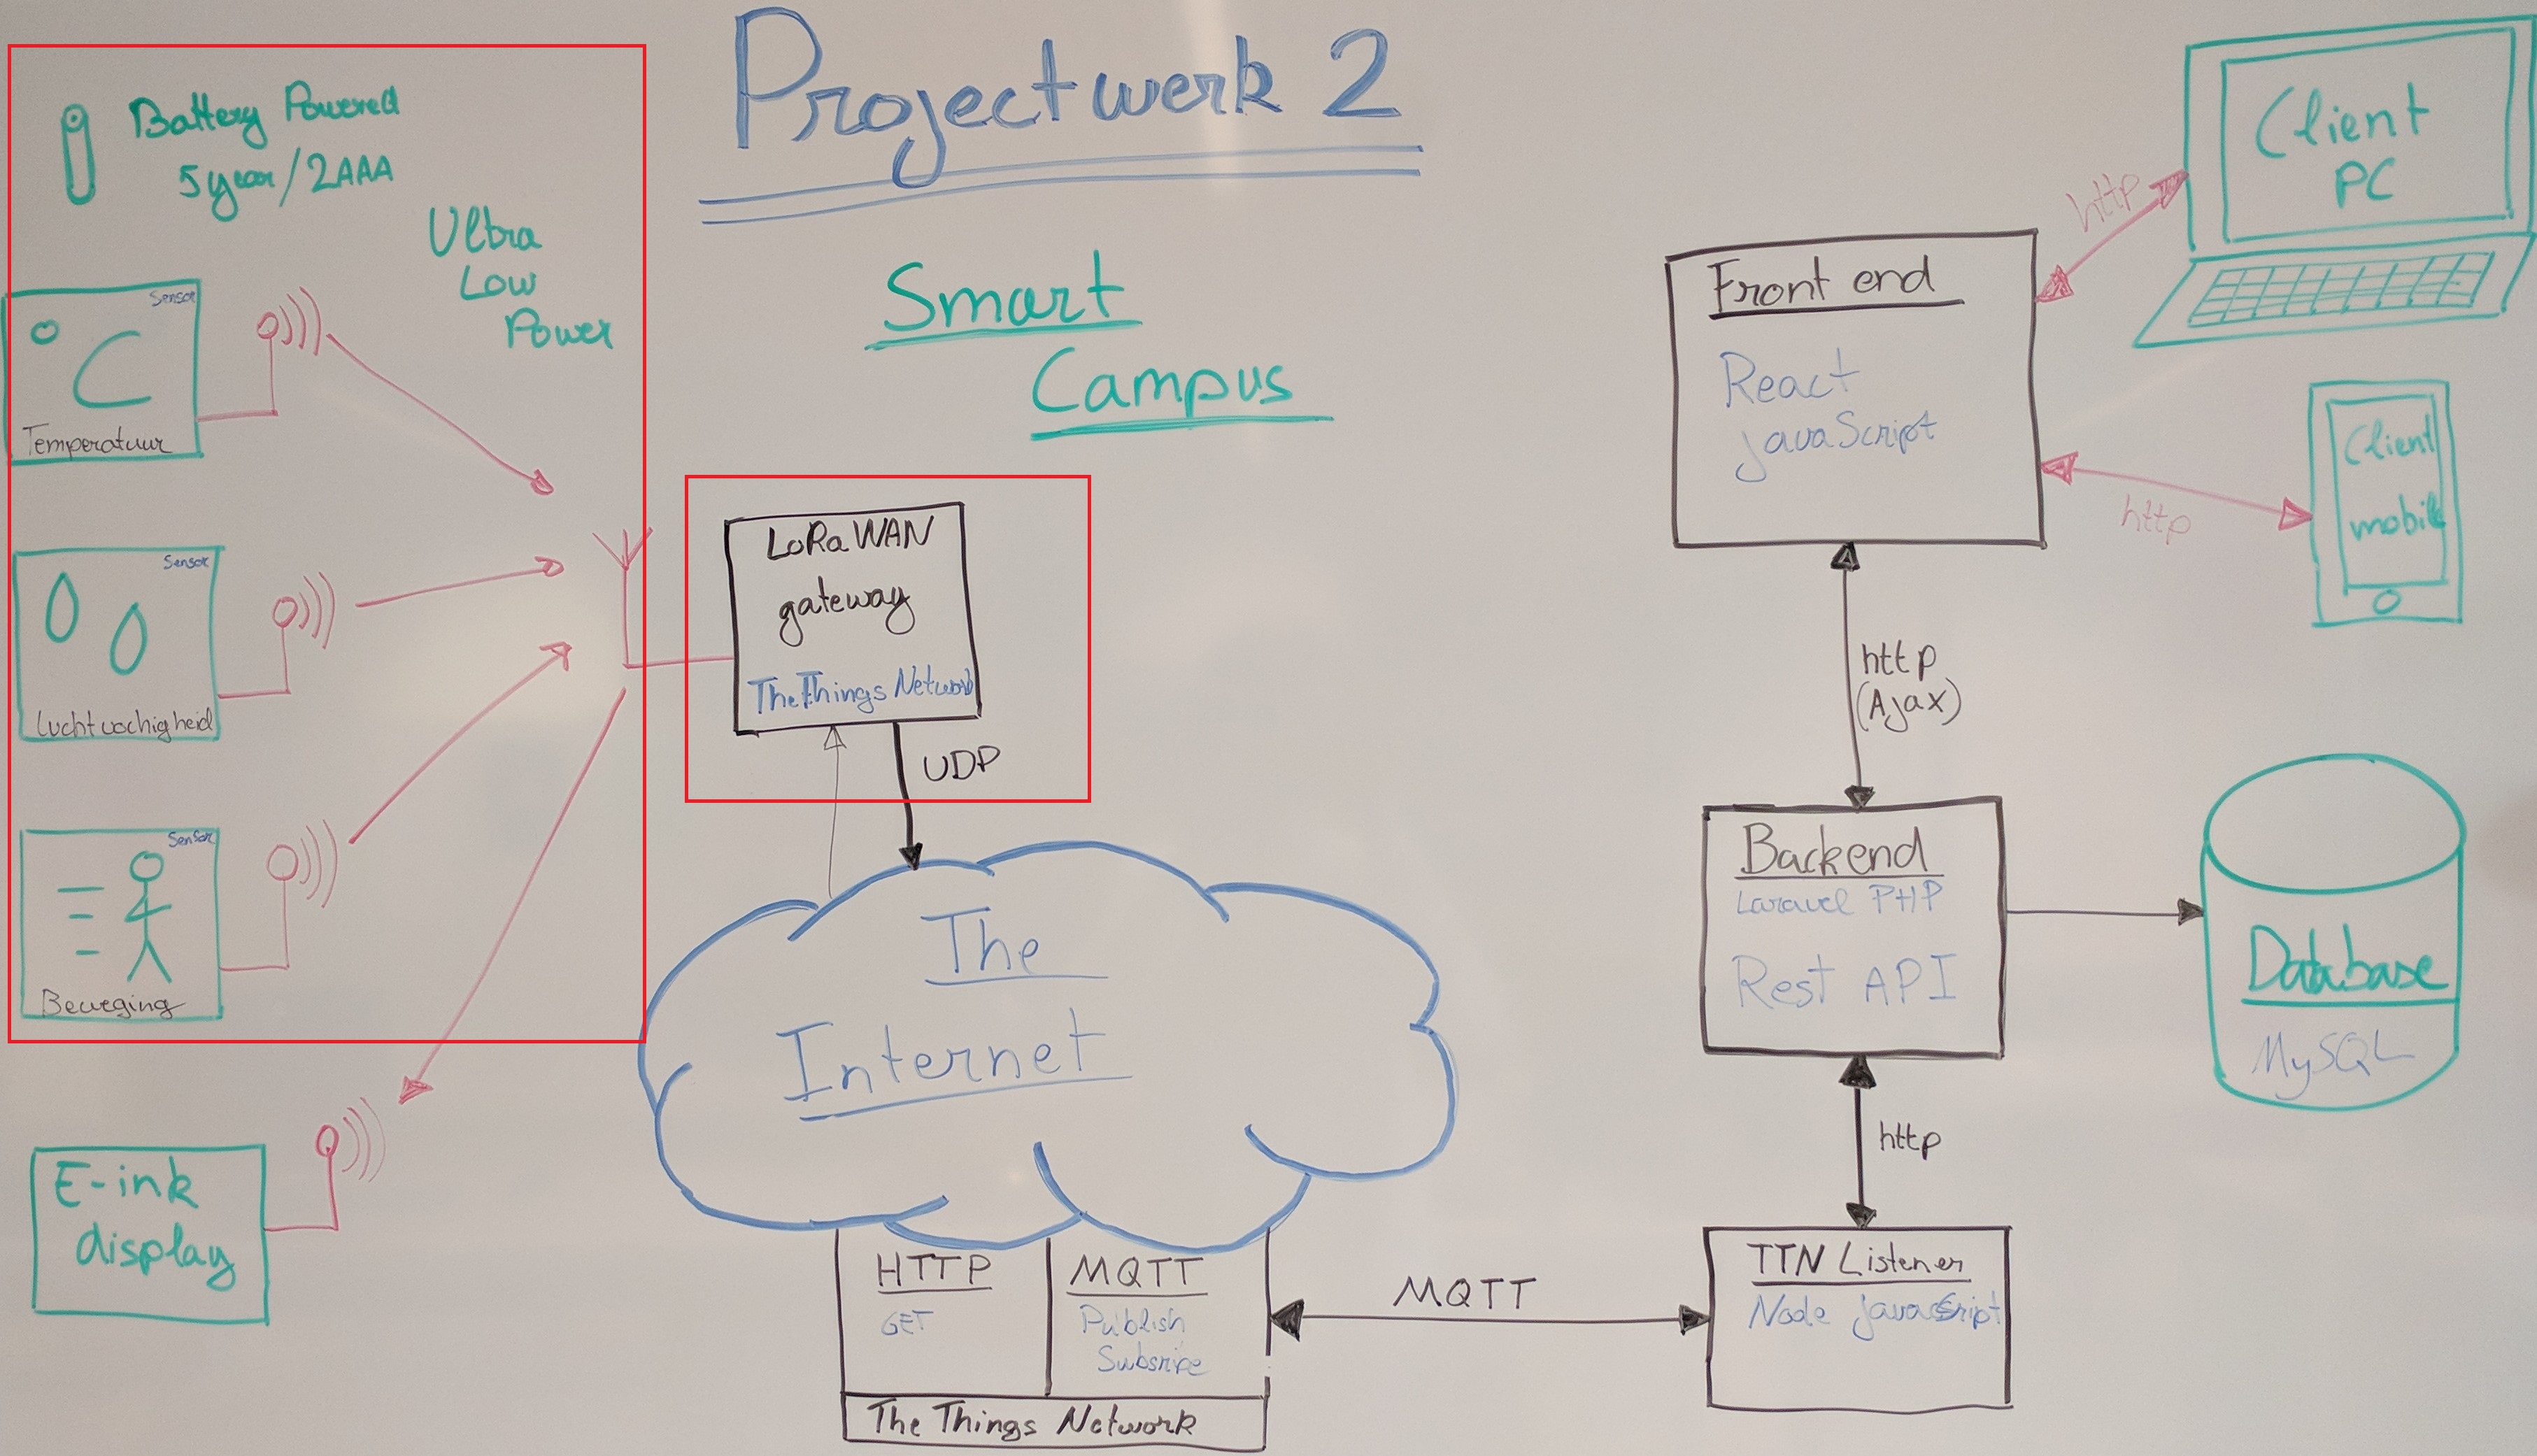 Projectwerk 2
Smart
Campus
Battery Powered
5 year/2AAA
Ultra
Low
Power
Sensor
° C
Temperatuur
Sensor
Luchtvochigheid
Sensor
Beweging
E-ink
display
LoRaWAN
gateway
The Things Network
UDP
The
Internet
HTTP
GET
MQTT
Publish
Subsripe
The Things Network
MQTT
TTN Listener
Node javascript
http
Backend
Laravel PHP
Rest API
Database
MySQL
http
(Ajax)
Front end
React
javaScript
http
Client
PC
http
Client
mobile